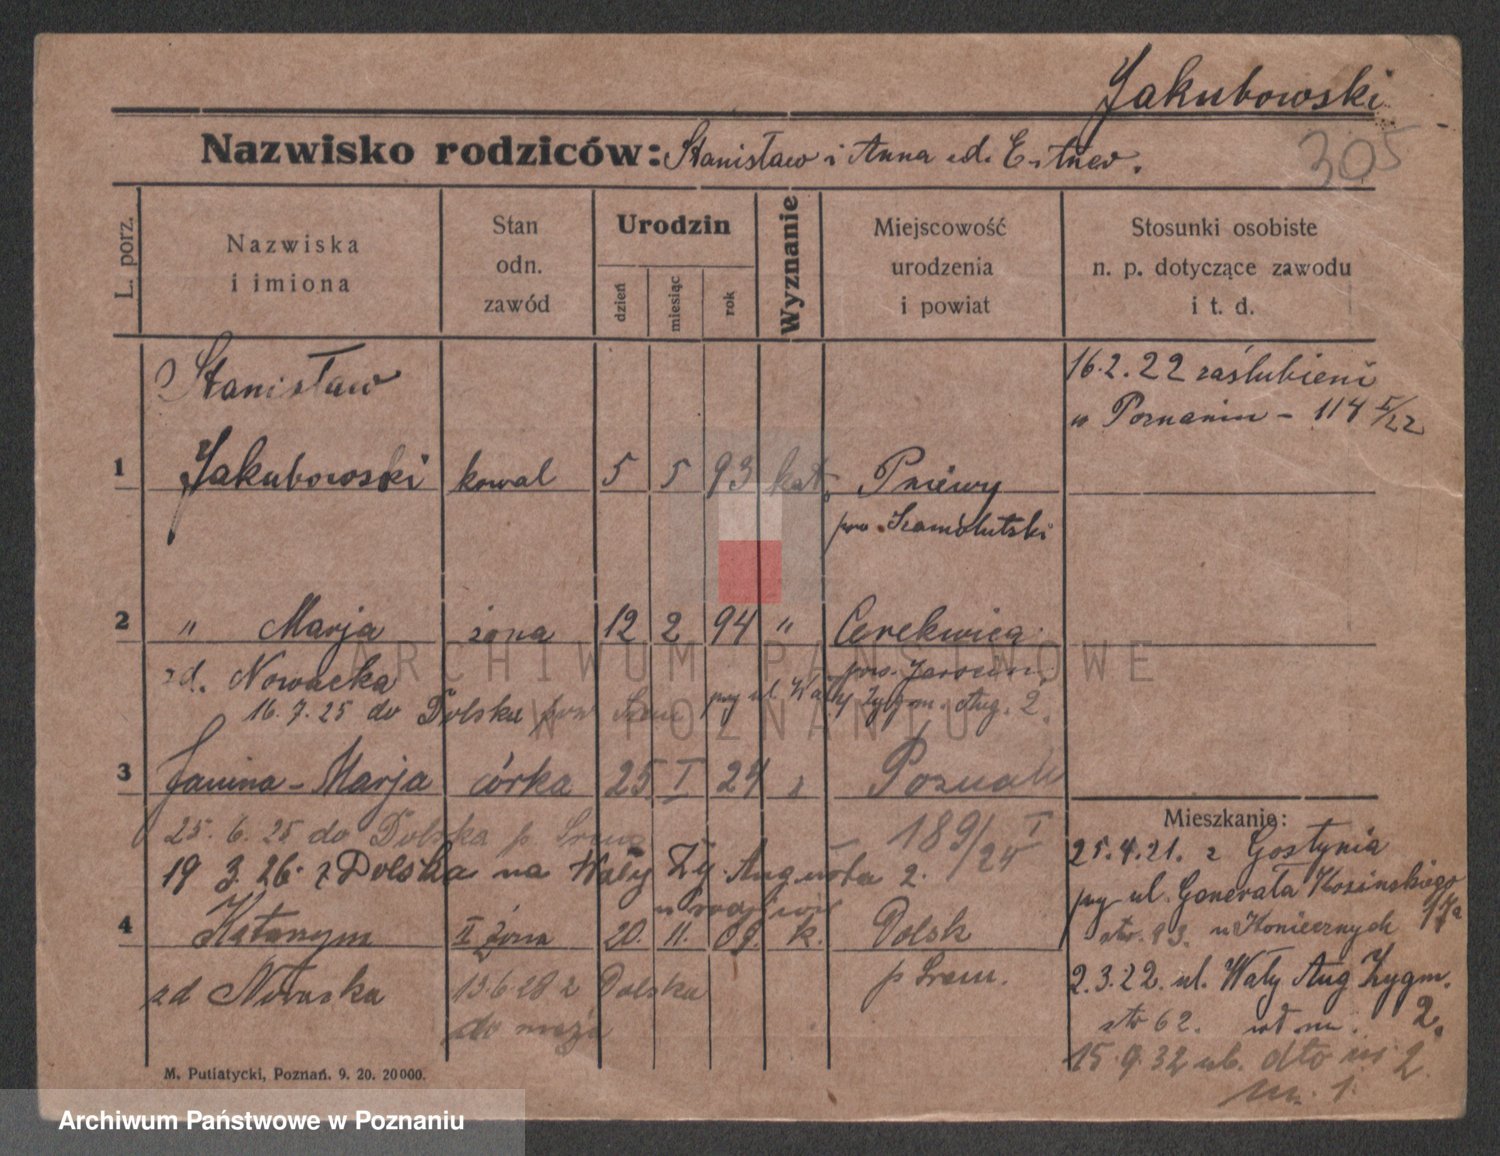 Jakubowski
305
Nazwisko rodziców: Stanisław i Anna zd.
L. porz.
Nazwiska i imiona
Stan odn. zawód
Urodzin
dzień
miesiąc
rok
Wyznanie
Miejscowość urodzenia i powiat
Stosunki osobiste n. p. dotyczące zawodu i t. d.
Stanisław
16.2.22 zaślubieni
w Poznaniu - 114 I/22
1 Jakubowski kowal 5 5 93 kat. Pniewy
pow. Szamotulski
2 " Marja żona 12 2 94 " Cerekwica
zd. Nowacka pow. Jarocin
16.7.25 do Dolska pow Śrem przy ul. Wały Zygm. Aug. 2.
3 Janina - Marja córka 25 I 24 Poznań
Mieszkanie:
25.6.25 do Dolska p. Śrem 189/24 I
25.4.21. z Gostynia
19 3.26. z Dolska na Wały Zy. Augusta 2.
przy ul. Generała Kosińskiego 17a
u rodziców
4 Katarzyn II żona 20. 11. 09. k. Dolsk
str. 93. u Koniecznych
zd 13.6 28 z Dolska p Śrem.
2.3.22. ul. Wały Aug Zygm. 2.
do męża
str 62.
15.9.32 ub. dto m. 2
m. 1.
M. Putiatycki, Poznań. 9. 20. 20000.
ARCHIWUM PAŃSTWOWE
W POZNANIU
Archiwum Państwowe w Poznaniu